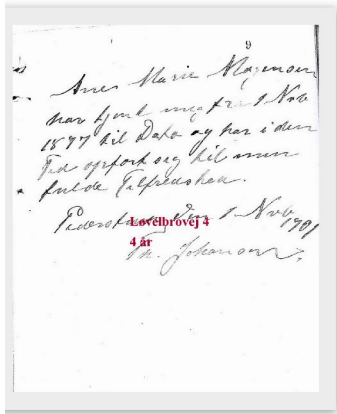 9
Ane Marie Mogensen
har tjent mig fra 1 Nvb
1897 til Dato og har i den
Tid opført sig til min
fulde Tilfredshed.
den 1 Nvb 1901
Lovelbrovej 4
4 år
Johansen